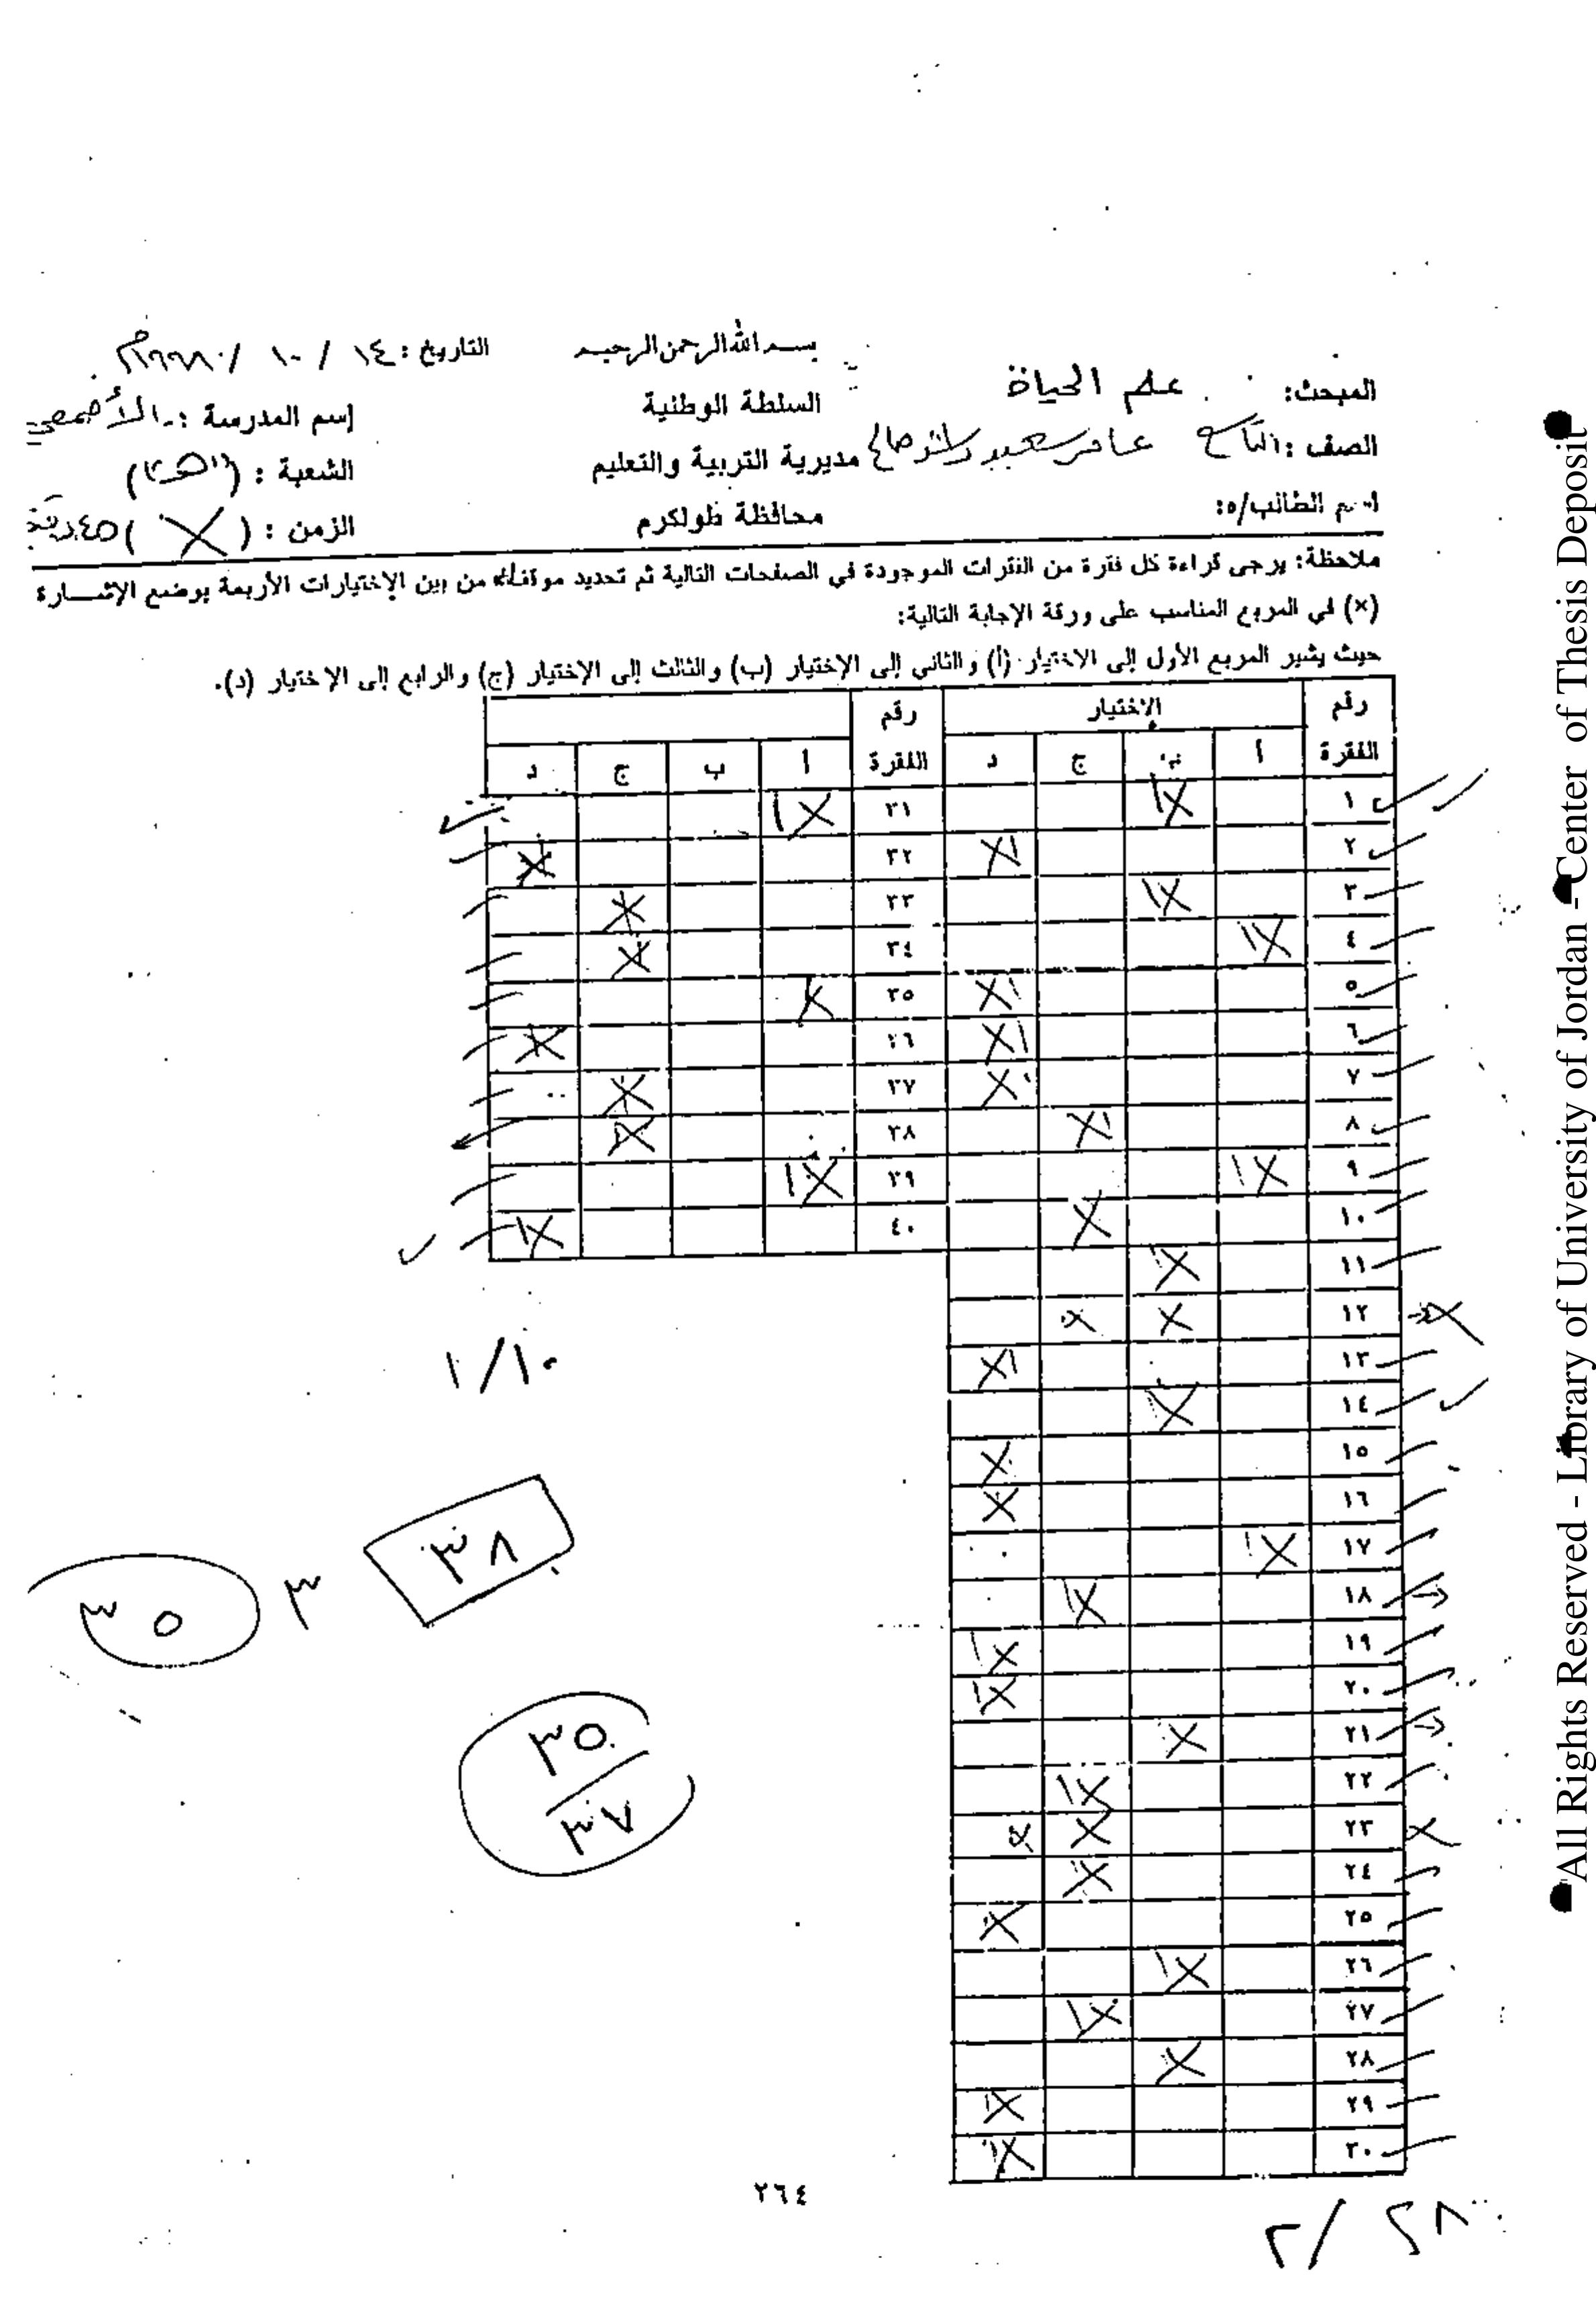 بسم الله الرحمن الرحيم
التاريخ : ١٤ / ١٠ / ١٩٩٨م
المبحث: علم الحياة
السلطة الوطنية
إسم المدرسة :
الصف : التاسع
مديرية التربية والتعليم
الشعبة : ( )
اسم الطالب/ه:
محافظة طولكرم
الزمن : ( X ) ٤٥ دقيقة
ملاحظة: يرجى قراءة كل فقرة من الفقرات الموجودة في الصفحات التالية ثم تحديد من بين الإختيارات الأربعة بوضع الإشــارة
(×) في المربع المناسب على ورقة الإجابة التالية:
حيث يشير المربع الأول إلى الاختيار (أ) والثاني إلى الإختيار (ب) والثالث إلى الإختيار (ج) والرابع إلى الإختيار (د).
رقم الفقرة الاختيار رقم الفقرة
أ ب ج د أ ب ج د
١ X ٣١ X
٢ X ٣٢ X
٣ X ٣٣ X
٤ X ٣٤ X
٥ X ٣٥ X
٦ X ٣٦ X
٧ X ٣٧ X
٨ X ٣٨ X
٩ X ٣٩ X
١٠ X ٤٠ X
١١ X
١٢ X X
١٣ X
١٤ X
١٥ X
١٦ X
١٧ X
١٨ X
١٩ X
٢٠ X
٢١ X
٢٢ X
٢٣ X X
٢٤ X
٢٥ X
٢٦ X
٢٧ X
٢٨ X
٢٩ X
٣٠ X
١/١٠
٣٨
٣
٣٥
٣٥
٣٧
٢/٢٨
٢٦٤
All Rights Reserved - Library of University of Jordan - Center of Thesis Deposit